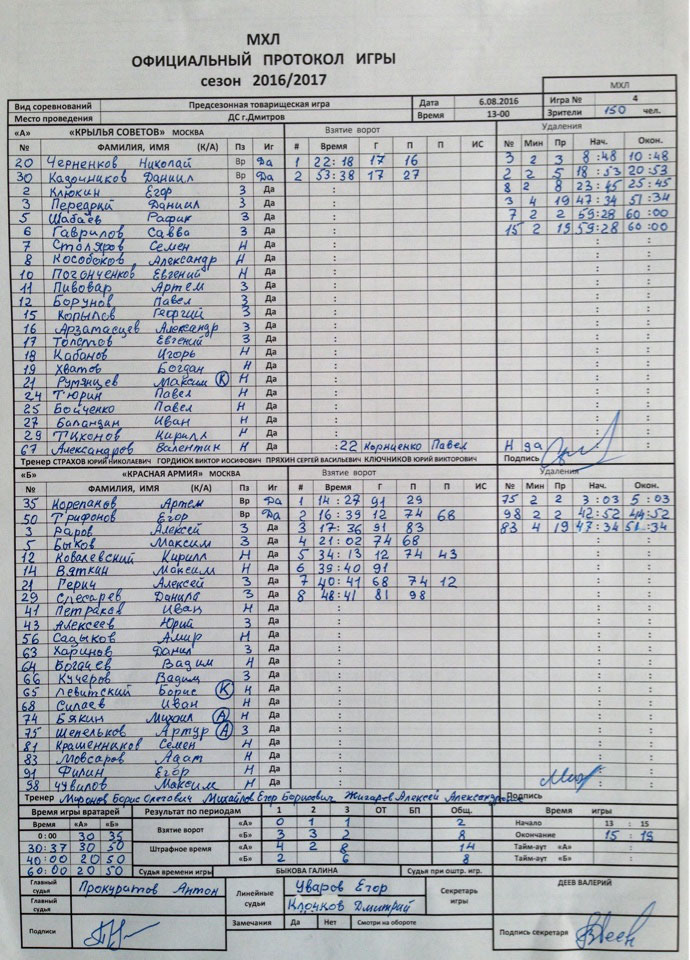 МХЛ
ОФИЦИАЛЬНЫЙ ПРОТОКОЛ ИГРЫ
сезон 2016/2017
МХЛ
Вид соревнований Предсезонная товарищеская игра Дата 6.08.2016 Игра № 4
Место проведения ДС г.Дмитров Время 13-00 Зрители 150 чел.
«А» «КРЫЛЬЯ СОВЕТОВ» МОСКВА Взятие ворот Удаления
№ ФАМИЛИЯ, ИМЯ (К/А) Пз Иг # Время Г П П ИС № Мин Пр Нач. Окон.
20 Черненков Николай Вр Да 1 22:18 17 16 3 2 3 8:48 10:48
30 Казриников Даниил Вр Да 2 53:38 17 27 2 2 5 18:53 20:53
2 Клюкин Егор З Да 8 2 8 23:45 25:45
3 Передрий Даниил З Да 3 4 19 47:34 51:34
5 Шабаев Рафик З Да 7 2 2 59:28 60:00
6 Гаврилов Савва З Да 15 2 19 59:28 60:00
7 Столяров Семен Н Да
8 Кособоков Александр Н Да
10 Погонченков Евгений Н Да
11 Пивовар Артем З Да
12 Борунов Павел З Да
15 Копылов Георгий З Да
16 Арзамасцев Александр З Да
17 Толстов Евгений Н Да
18 Кабанов Игорь Н Да
19 Хватов Богдан Н Да
21 Румянцев Максим К Н Да
24 Тюрин Павел Н Да
25 Бойченко Павел Н Да
27 Баландин Иван Н Да
29 Тихонов Кирилл Н Да
67 Александров Валентин Н Да 22 Корниенко Павел Н да
Тренер СТРАХОВ ЮРИЙ НИКОЛАЕВИЧ ГОРДИЮК ВИКТОР ИОСИФОВИЧ ПРЯХИН СЕРГЕЙ ВАСИЛЬЕВИЧ КЛЮЧНИКОВ ЮРИЙ ВИКТОРОВИЧ Подпись
«Б» «КРАСНАЯ АРМИЯ» МОСКВА Взятие ворот Удаления
№ ФАМИЛИЯ, ИМЯ (К/А) Пз Иг # Время Г П П ИС № Мин Пр Нач. Окон.
35 Корепанов Артем Вр Да 1 14:27 91 29 75 2 2 3:03 5:03
50 Трифонов Егор Вр Да 2 16:39 12 74 68 98 2 2 42:52 44:52
3 Раров Алексей З Да 3 17:36 91 83 83 4 19 47:34 51:34
5 Быков Максим З Да 4 21:02 74 68
12 Ковалевский Кирилл Н Да 5 34:13 12 74 43
14 Вяткин Максим Н Да 6 39:40 91
21 Герич Алексей З Да 7 40:41 68 74 12
29 Слесарев Данила З Да 8 48:41 81 98
41 Петраков Иван Н Да
43 Алексеев Юрий З Да
56 Садыков Амир Н Да
63 Харинов Данил З Да
64 Богачев Вадим Н Да
66 Кучеров Вадим З Да
65 Левитский Борис К Н Да
68 Силаев Иван Н Да
74 Бякин Михаил А Н Да
75 Шепельков Артур А З Да
81 Крашенников Семен Н Да
83 Мовсаров Адат Н Да
91 Филин Егор Н Да
98 Чувилов Максим Н Да
Тренер Миронов Борис Олегович Михайлов Егор Борисович Жигаров Алексей Подпись
Время игры вратарей Результат по периодам 1 2 3 ОТ БП Общ. Время игры
Время «А» «Б» Взятие ворот «А» 0 1 1 2 Начало 13 : 15
0 : 00 30 35 «Б» 3 3 2 8 Окончание 15 : 19
30:37 30 50 Штрафное время «А» 4 2 8 14 Тайм-аут «А» :
40:00 20 50 «Б» 2 6 8 Тайм-аут «Б» :
60:00 20 50 Судья времени игры БЫКОВА ГАЛИНА Судья при оштр. игр.
Главный судья Прокуратов Антон Линейные судьи Уваров Егор Секретарь игры ДЕЕВ ВАЛЕРИЙ
Главный судья Клочков Дмитрий
Подписи Замечания Да Нет Смотри на обороте Подпись секретаря